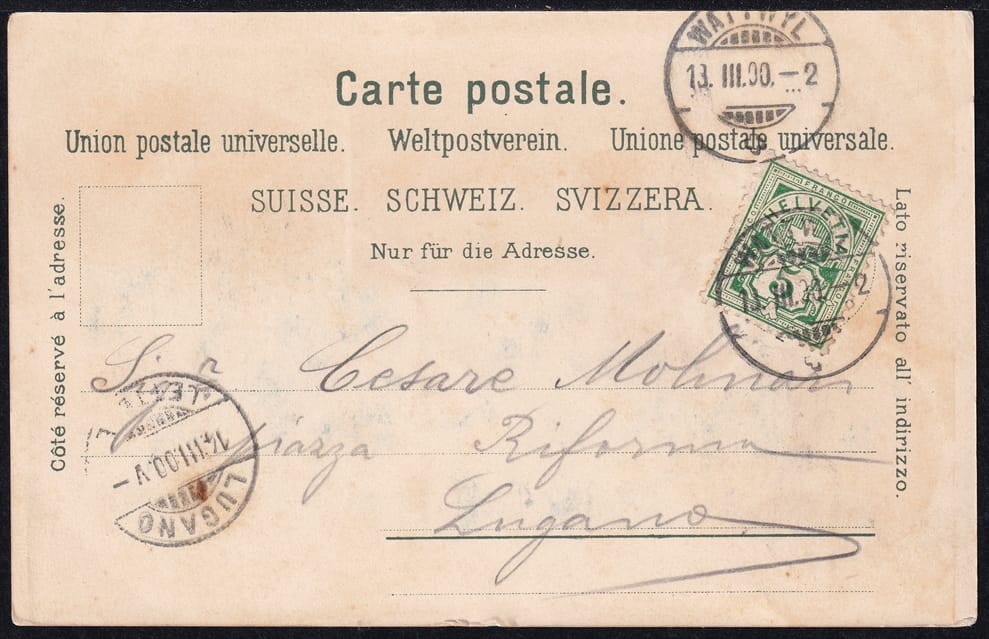 WATTWYL
13. III.00. – 2
Carte postale.
Union postale universelle. Weltpostverein. Unione postale universale.
SUISSE. SCHWEIZ. SVIZZERA.
Nur für die Adresse.
Côté réservé à l'adresse.
Lato riservato all' indirizzo.
FRANCO
HELVETIA
5
13. III.00. – 2
Sigr Cesare Molinari
piazza Riforma
Lugano
LETTE
14.III.00.V –
LUGANO